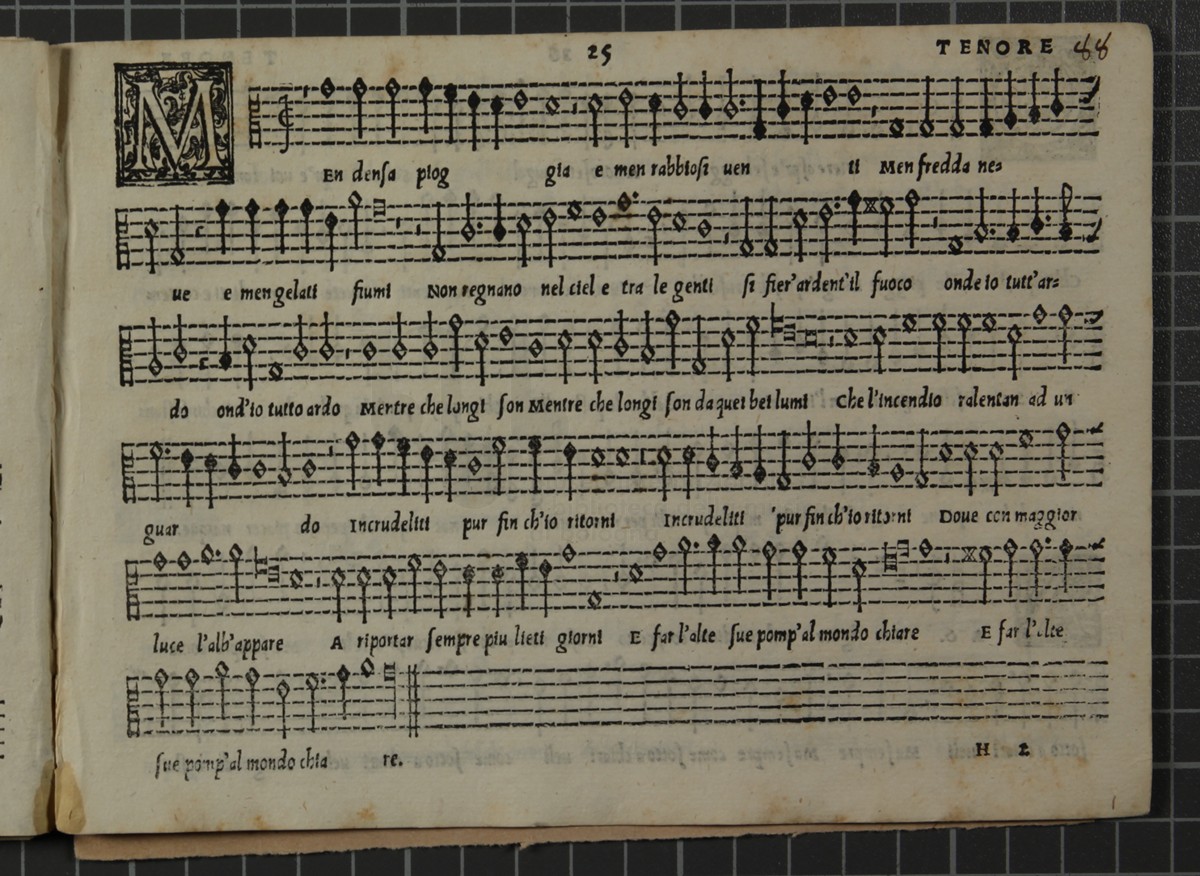 25 TENORE 88
MEn densa piog gia e men rabbiosi uen ti Men fredda ne=
ue e men gelati fiumi Non regnano nel ciel e tra le genti si fier'ardent'il fuoco onde io tutt'ar=
do ond'io tutto ardo Mentre che longi son Mentre che longi son da quei bei lumi Che l'incendio ralentan ad un
guar do Incrudeliti pur fin ch'io ritorni Incrudeliti pur fin ch'io ritorni Doue con maggior
luce l'alb'appare A riportar sempre piu lieti giorni E far l'alte sue pomp'al mondo chiare E far l'alte
sue pomp'al mondo chia re.
H 2